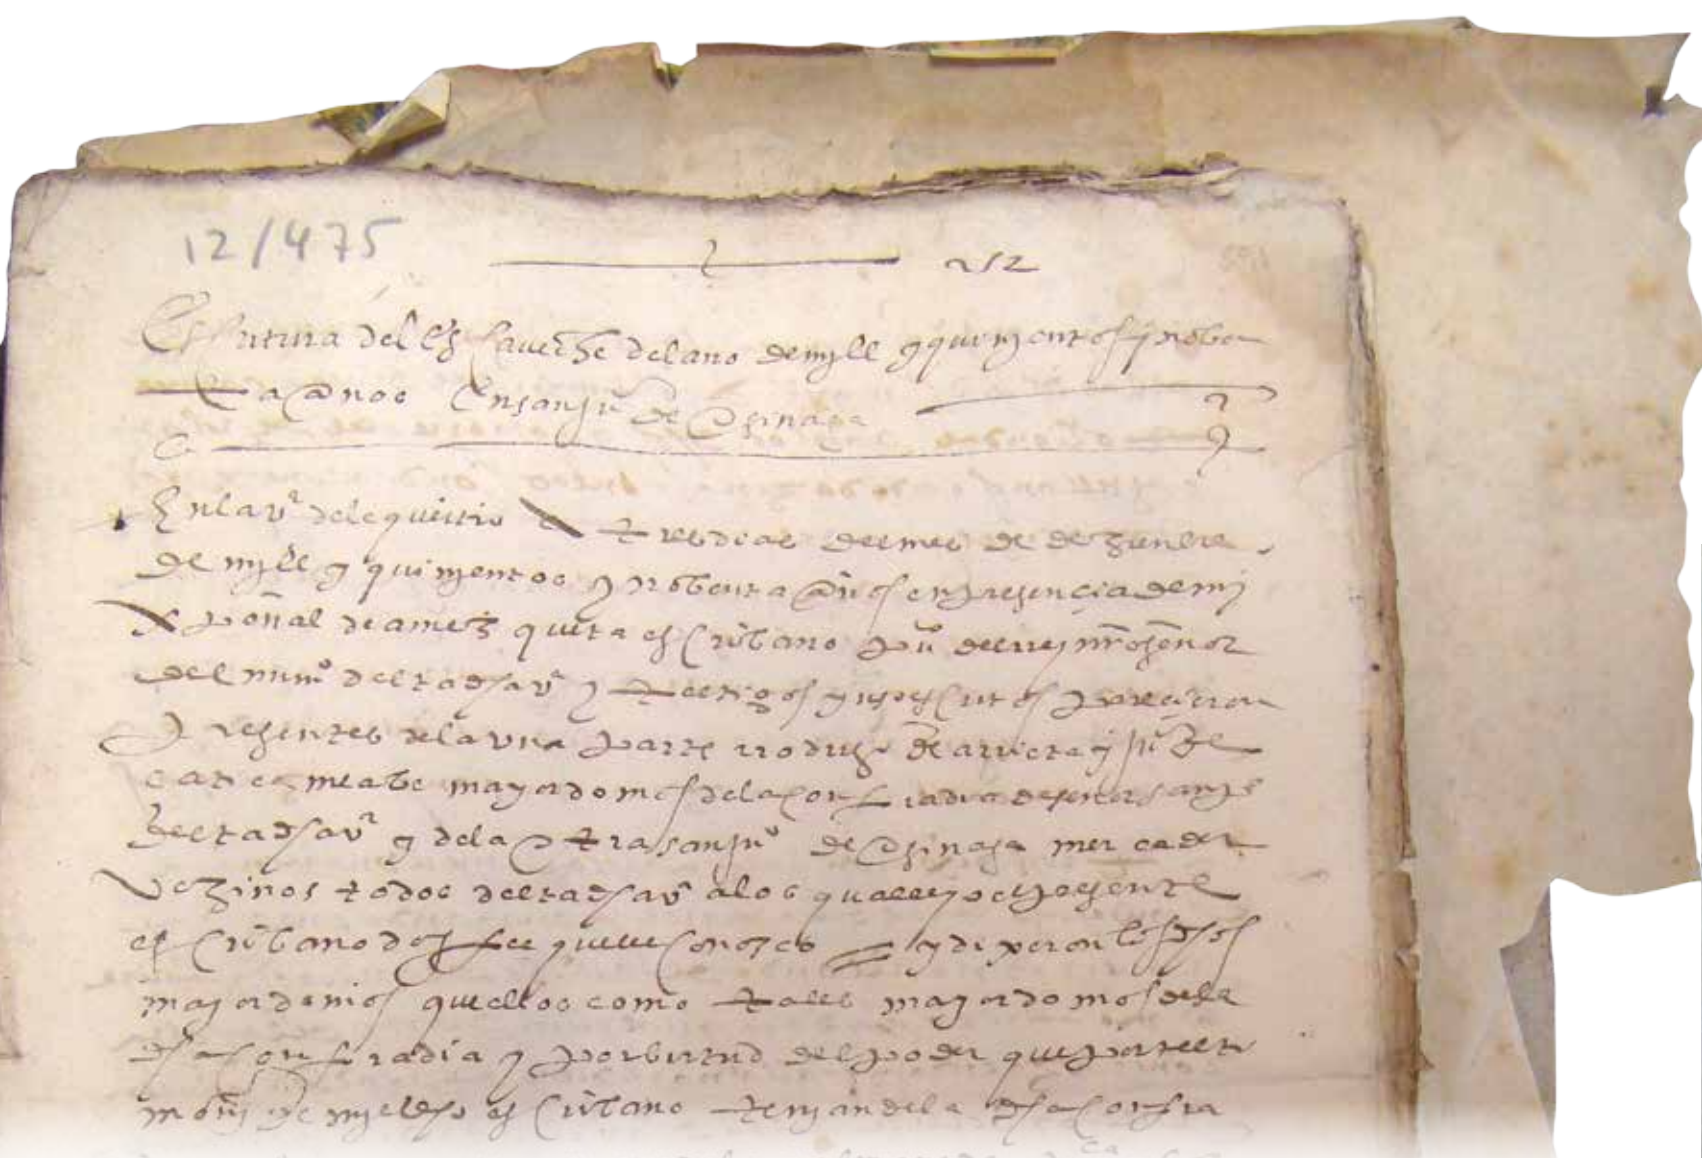 12/475
212
Escritura del esCaveche del año de myll y quinyentos y noben
ta años En san ju° de Osinaga
En la vª de lequeitio a tres dias del mes de dezienbre
de myll y quinyentos y nobenta años en presençia de mi
de amezqueta esCribano pu° del rey nro señor
del num° de la dha vª y testigos ynsoescritos pareçieron
presentes de la vna parte rrodrigo de arrieta y ju° de
mayordomos de la Confradia de señor san p°
de la dha vª y de la otra san ju° de Osinaga mercader
vezinos todos de la dha vª a los quales yo el presente
esCribano doy fee que Conozco y dixeron los dhos
mayordomos que ellos como tales mayordomos de la
dha Confradia y por birtud del poder que por testi
mony° de my el dho esCribano tenian de la dha Confra